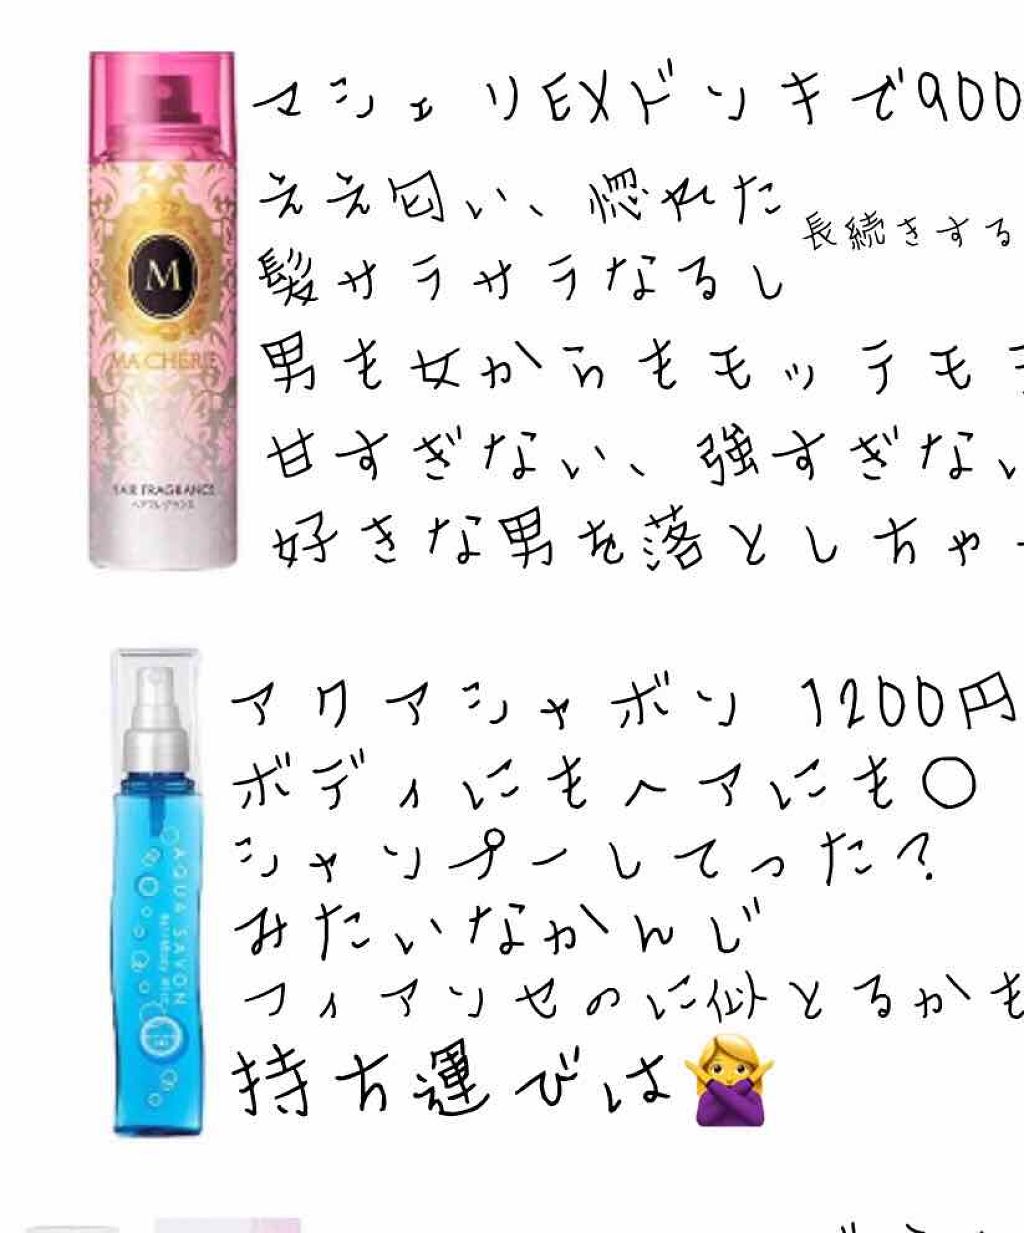 マシェリEXドンキで900
ええ匂い、惚れた
長続きする
髪サラサラなるし
男も女からもモッテモテ
甘すぎない、強すぎない
好きな男を落としちゃ
M
MA CHÉRIE
HAIR FRAGRANCE
ヘアフレグランス
アクアシャボン 1200円
ボディにもヘアにも〇
シャンプーしてった?
みたいなかんじ
フィアンセのに似とるかも
持ち運びは🙅‍♀️
AQUA SAVON